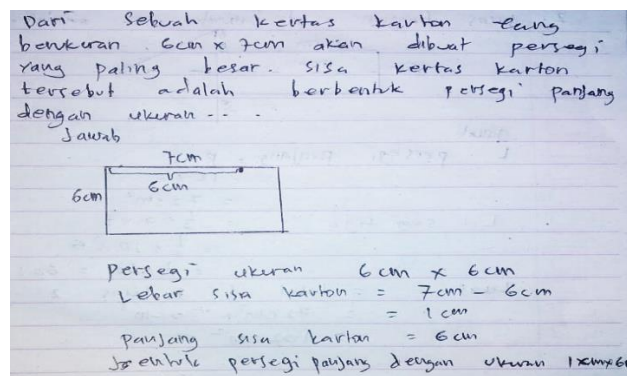 Dari sebuah kertas karton yang
berukuran 6cm x 7cm akan dibuat persegi
yang paling besar. sisa kertas karton
tersebut adalah berbentuk persegi panjang
dengan ukuran - - -
Jawab
7cm
6cm
6cm
persegi ukuran 6 cm x 6 cm
Lebar sisa karton = 7cm - 6cm
= 1 cm
panjang sisa karton = 6 cm
persegi panjang dengan ukuran 1 cm x 6